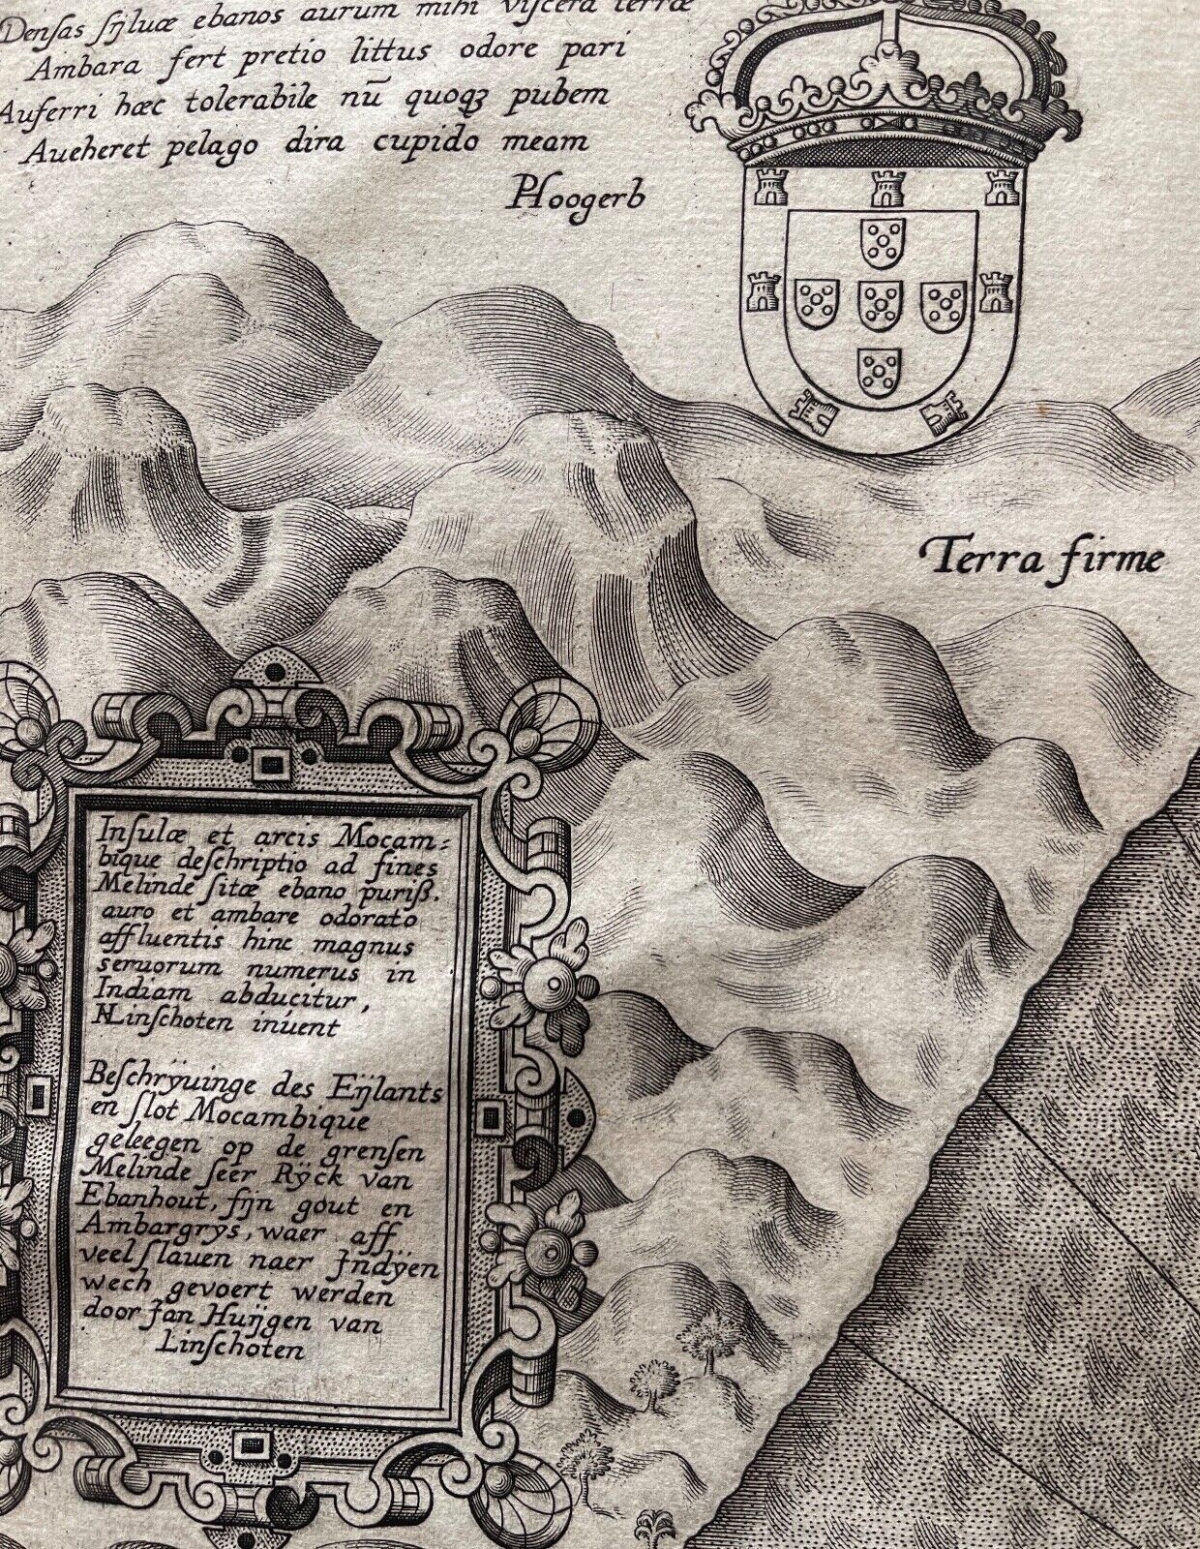 Denſas ſylvæ ebanos aurum mihi viſcera terræ
Ambara fert pretio littus odore pari
Auferri hæc tolerabile nū quoqȝ pubem
Aueheret pelago dira cupido meam
PHoogerb
Terra firme
Inſulæ et arcis Mocam:
bique deſchriptio ad fines
Melinde ſitæ ebano puriß.
auro et ambare odorato
affluentis hinc magnus
seruorum numerus in
Indiam abducitur,
HLinſchoten inuent
Beſchrÿuinge des Eÿlants
en ſlot Mocambique
geleegen op de grenſen
Melinde ſeer Rÿck van
Ebanhout, fijn gout en
Ambargrÿs, waer aff
veel ſlauen naer Jndÿen
wech gevoert werden
door Jan Huÿgen van
Linſchoten